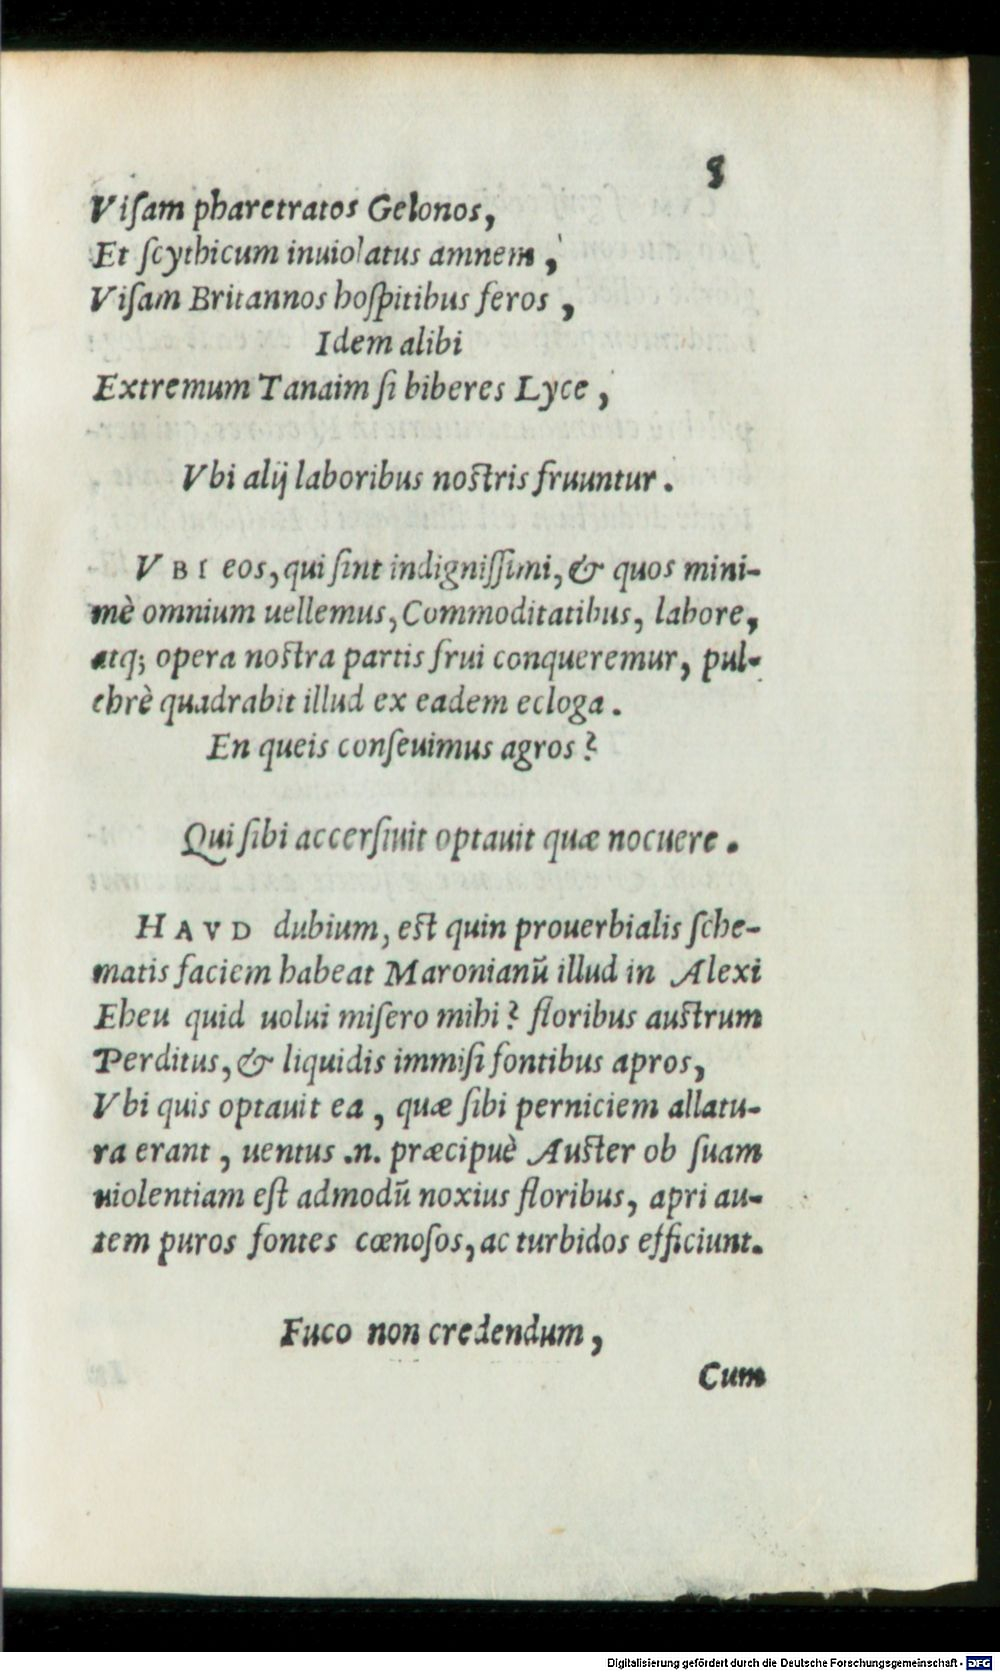 8
Viſam pharetratos Gelonos,
Et ſcythicum inuiolatus amnem,
Viſam Britannos hoſpitibus feros,
Idem alibi
Extremum Tanaim ſi biberes Lyce,
Vbi alij laboribus noſtris fruuntur.
VBI eos, qui ſint indigniſſimi, & quos mini-
mè omnium uellemus, Commoditatibus, labore,
atq; opera noſtra partis frui conqueremur, pul-
chrè quadrabit illud ex eadem ecloga.
En queis conſeuimus agros?
Qui ſibi accerſiuit optauit quæ nocuere.
HAVD dubium, eſt quin prouerbialis ſche-
matis faciem habeat Maronianũ illud in Alexi
Eheu quid uolui miſero mihi? floribus auſtrum
Perditus, & liquidis immiſi fontibus apros,
Vbi quis optauit ea, quæ ſibi perniciem allatu-
ra erant, uentus .n. præcipuè Auſter ob ſuam
uiolentiam eſt admodũ noxius floribus, apri au-
tem puros fontes cœnoſos, ac turbidos efficiunt.
Fuco non credendum,
Cum
Digitalisierung gefördert durch die Deutsche Forschungsgemeinschaft - DFG